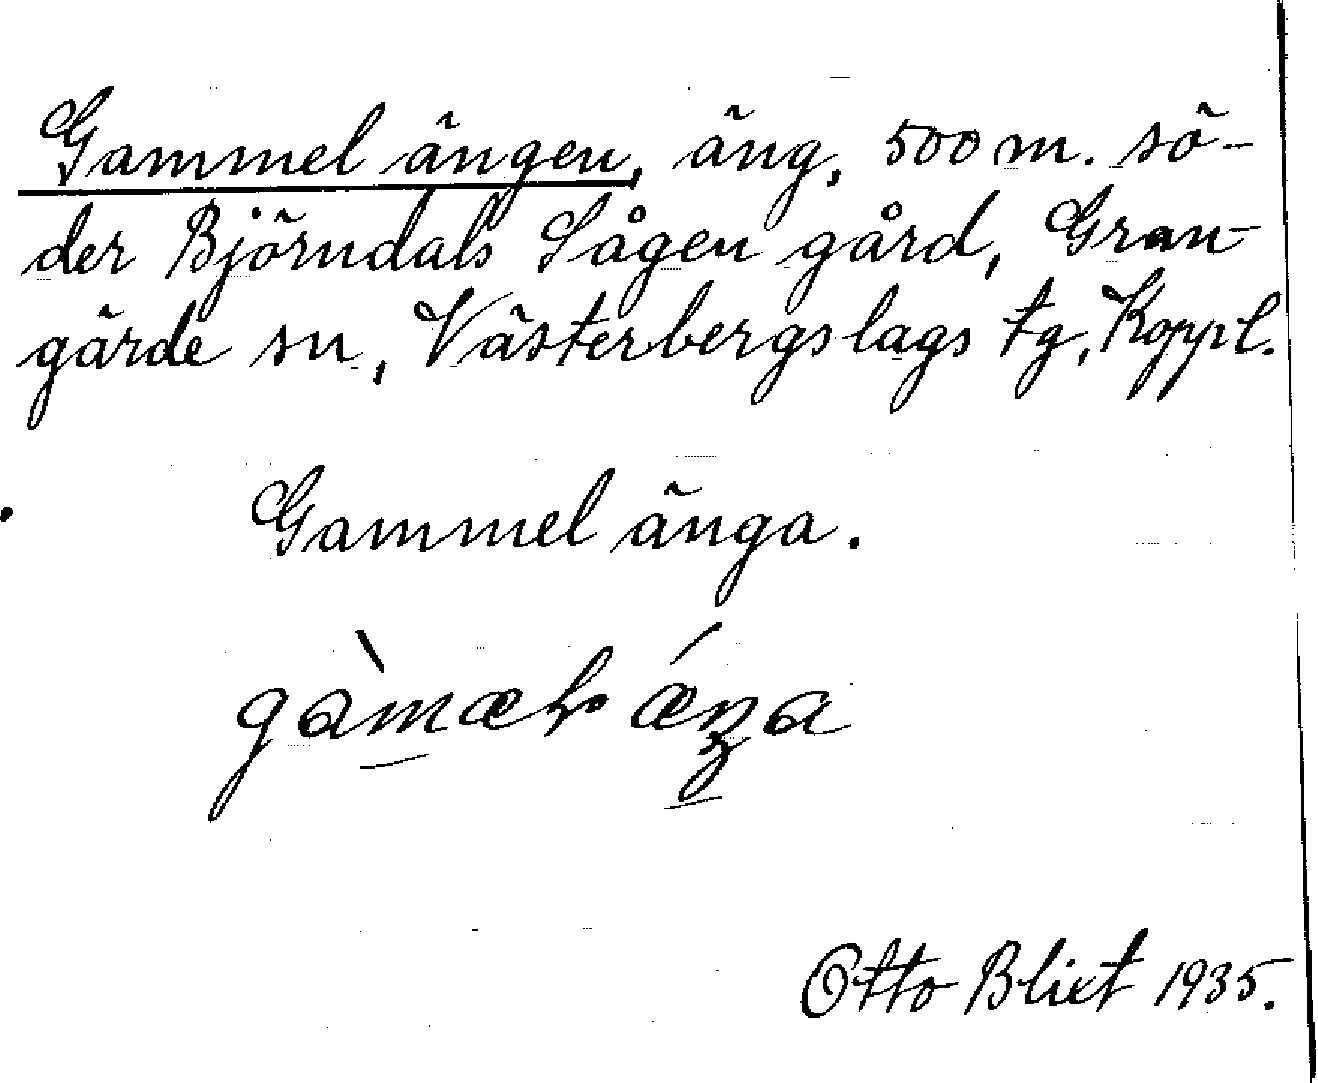 Gammelängen, äng, 500 m. sö-
der Björndals Sågen gård, Gran-
gärde sn, Västerbergslags tg, Koppl.
Gammeländga.
Otto Blixt 1935.